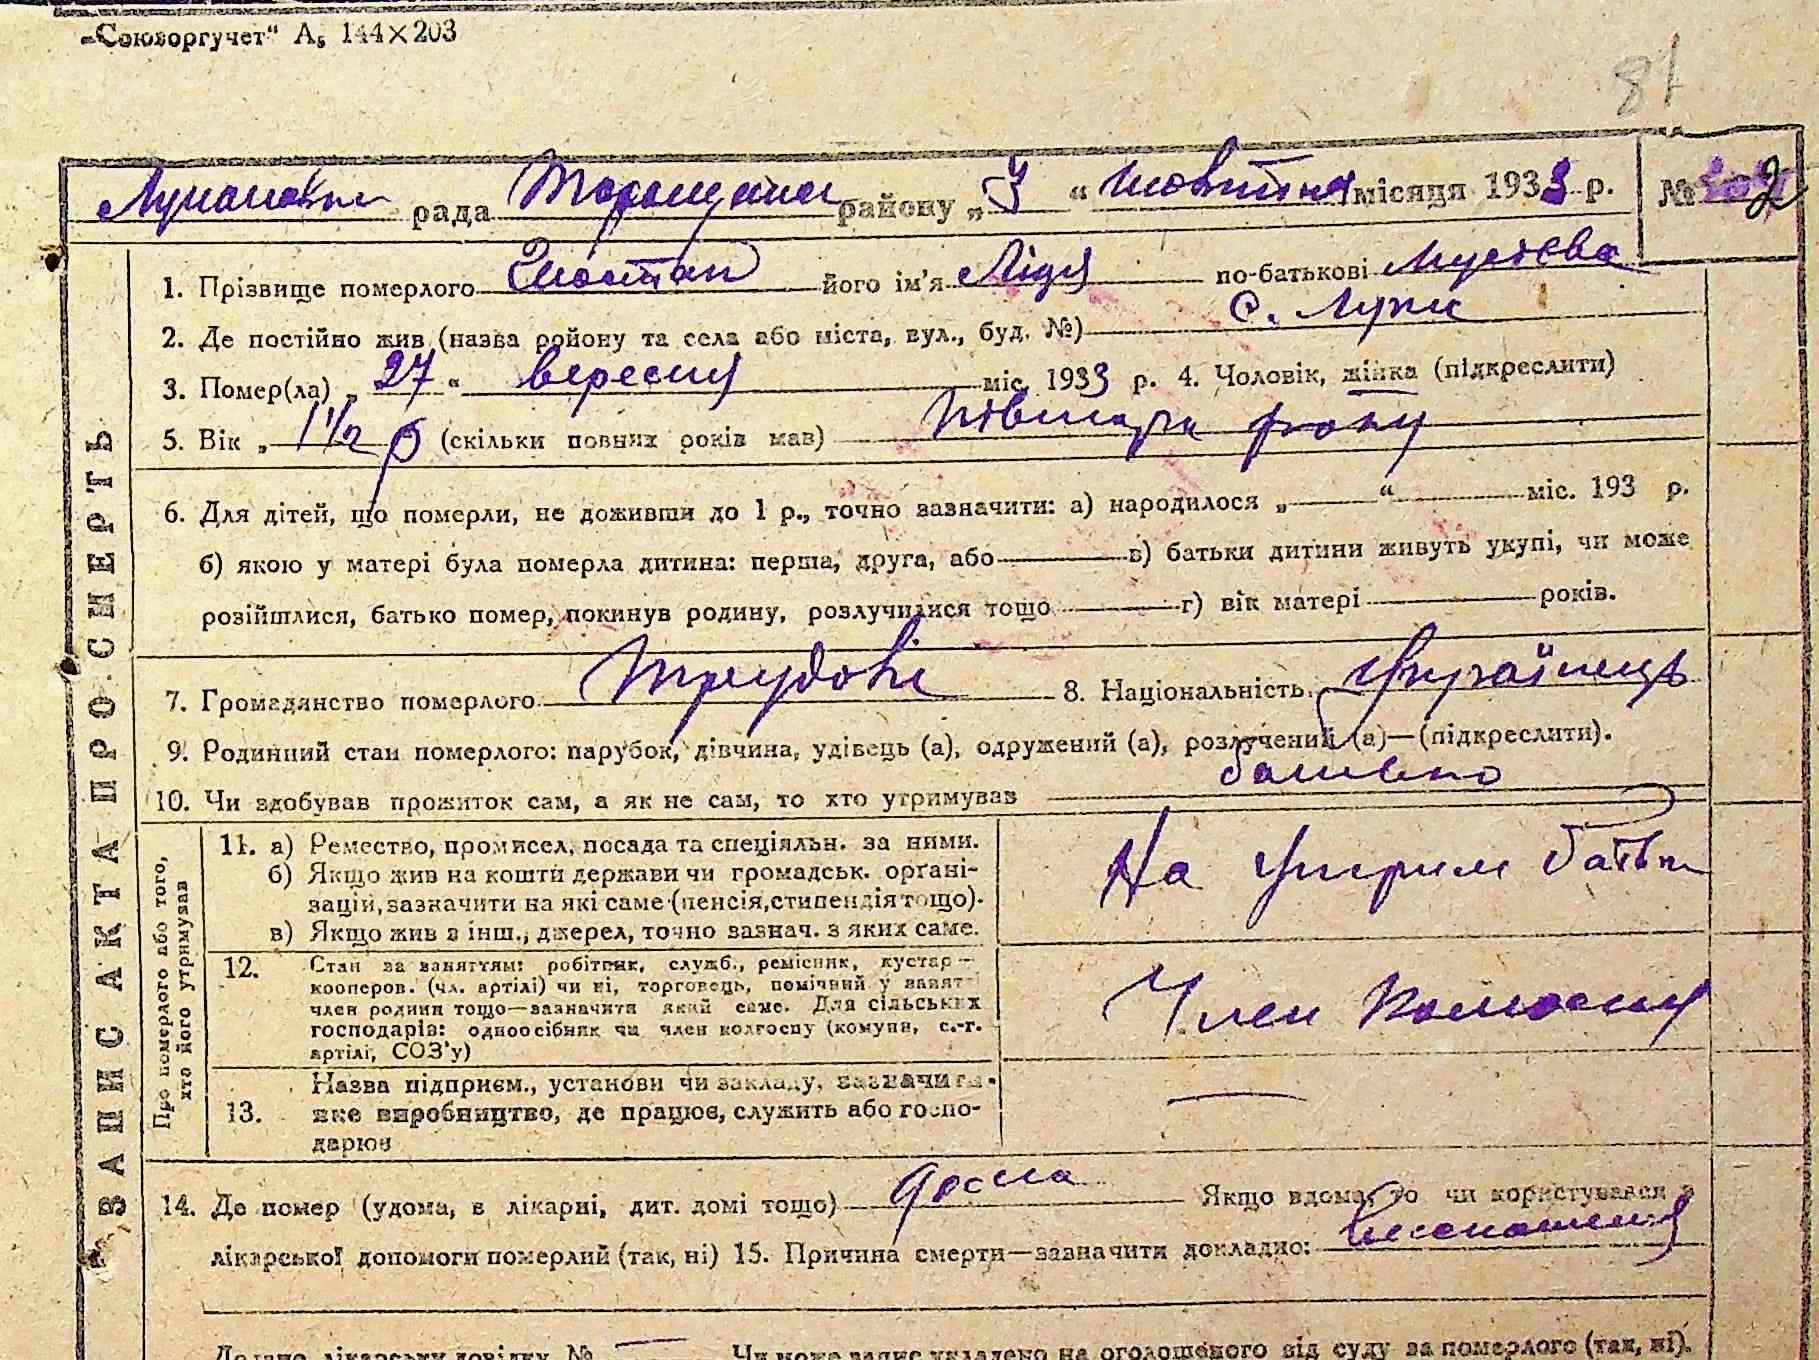 „Союзоргучет“ А₅ 144×203
81
рада району „3 “ жовтня місяця 1933 р. № 2
1. Прізвище померлого Шостак його ім'я Лідя по-батькові
2. Де постійно жив (назва ройону та села або міста, вул., буд. №) с. Луки
3. Помер(ла) „ 27 “ вересня міс. 1933 р. 4. Чоловік, жінка (підкреслити)
5. Вік „ 1 1/2 р (скільки повних років мав) півтора року
6. Для дітей, що померли, не доживши до 1 р., точно зазначити: а) народилося „ “ міс. 193 р.
б) якою у матері була померла дитина: перша, друга, або в) батьки дитини живуть укупі, чи може
розійшлися, батько помер, покинув родину, розлучилися тощо г) вік матері років.
7. Громадянство померлого трудові 8. Національність українець
9. Родинний стан померлого: парубок, дівчина, удівець (а), одружений (а), розлучений (а)—(підкреслити).
10. Чи здобував прожиток сам, а як не сам, то хто утримував батько
ЗАПИС АКТА ПРО СМЕРТЬ
Про померлого або того, хто його утримував
11. а) Ремество, промисел, посада та спеціяльн. за ними.
б) Якщо жив на кошти держави чи громадськ. орґані-
зацій, зазначити на які саме (пенсія, стипендія тощо).
в) Якщо жив з інш., джерел, точно зазнач. з яких саме.
На утрим батька
12. Стан за заняттям: робітник, служб., ремісник, кустар—
кооперов. (чл. артілі) чи ні, торговець, помічний у занят
член родини тощо—зазначити який саме. Для сільських
господарів: одноосібник чи член колгоспу (комуни, с.-г.
артілі, СОЗ'у)
Член колгоспу
13. Назва підприєм., установи чи закладу, зазначити
яке виробництво, де працює, служить або госпо-
дарює
14. Де помер (удома, в лікарні, дит. домі тощо) Якщо вдома, то чи користувався з
лікарської допомоги померлий (так, ні) 15. Причина смерти—зазначити докладно:
лікарську довідку № Чи може запис укладено на оголошеного від суду за померлого (так, ні).